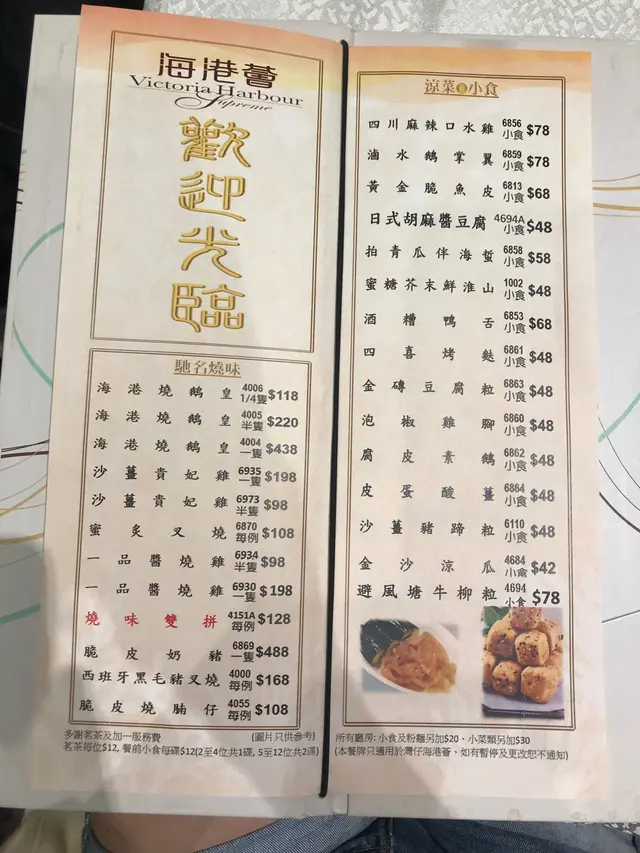 海港薈
Victoria Harbour
Supreme
歡迎光臨
馳名燒味
海港燒鵝皇 4006 1/4隻 $118
海港燒鵝皇 4005 半隻 $220
海港燒鵝皇 4004 一隻 $438
沙薑貴妃雞 6935 一隻 $198
沙薑貴妃雞 6973 半隻 $98
蜜炙叉燒 6870 每例 $108
一品醬燒雞 6934 半隻 $98
一品醬燒雞 6930 一隻 $198
燒味雙拼 4151A 每例 $128
脆皮奶豬 6869 一隻 $488
西班牙黑毛豬叉燒 4000 每例 $168
脆皮燒腩仔 4055 每例 $108
多謝茗茶及加一服務費 (圖片只供參考)
茗茶每位$12, 餐前小食每碟$12(2至4位共1碟, 5至12位共2碟)
涼菜 小食
四川麻辣口水雞 6856 小食 $78
滷水鵝掌翼 6859 小食 $78
黃金脆魚皮 6813 小食 $68
日式胡麻醬豆腐 4694A 小食 $48
拍青瓜伴海蜇 6858 小食 $58
蜜糖芥末鮮淮山 1002 小食 $48
酒糟鴨舌 6853 小食 $68
四喜烤麩 6861 小食 $48
金磚豆腐粒 6863 小食 $48
泡椒雞腳 6860 小食 $48
腐皮素鵝 6862 小食 $48
皮蛋酸薑 6864 小食 $48
沙薑豬蹄粒 6110 小食 $48
金沙涼瓜 4684 小食 $42
避風塘牛柳粒 4694 小食 $78
所有廳房: 小食及粉麵另加$20、小菜類另加$30
(本餐牌只適用於灣仔海港薈、如有暫停及更改恕不通知)